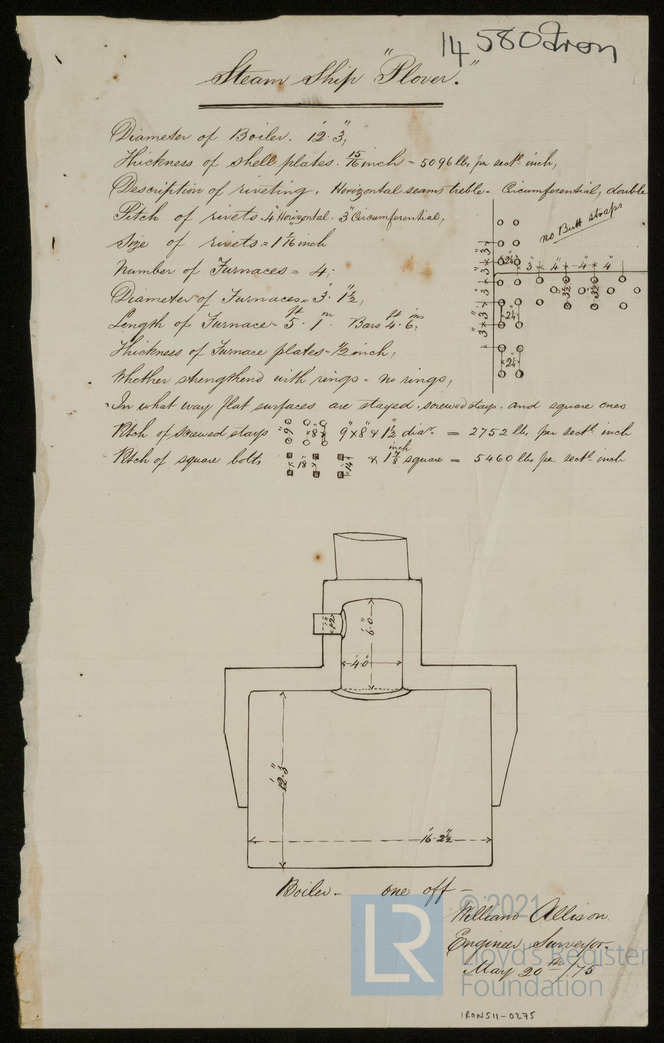 14580 Iron
Steam Ship "Plover."
Diameter of Boiler. 12'·3",
Thickness of shell plates. 15/16 inch = 5096 lbs, per sectl. inch,
Description of riveting. Horizontal seams treble. Circumferential, double
Pitch of rivets. 4" Horizontal. 3" Circumferential,
no Butt straps
Size of rivets = 1 1/16 inch
Number of Furnaces = 4;
Diameter of Furnaces. 3'·1½",
Length of Furnace = 5ft·1in Bars 4ft·6in,
Thickness of Furnace plates = ½ inch,
Whether strengthend with rings = no rings,
In what way flat surfaces are stayed. screwed stays. and square ones
Pitch of Screwed stays 9" 8" 9" x 8" x 1½" diar. = 2752 lbs, per sectl. inch
Pitch of square bolts 18" 14" x 1⅞ inch square = 5460 lbs, per sectl. inch
3" 3" 3" 3"
2¼" 3" 4" 4" 4"
2¼"
2¼"
12"
6'·0"
4'·0"
12'·3"
16'·2½"
Boiler – one off –
William Allison
Engineer Surveyor.
May 20th/75
LR
© 2021
Lloyd's Register
Foundation
IRON511-0275